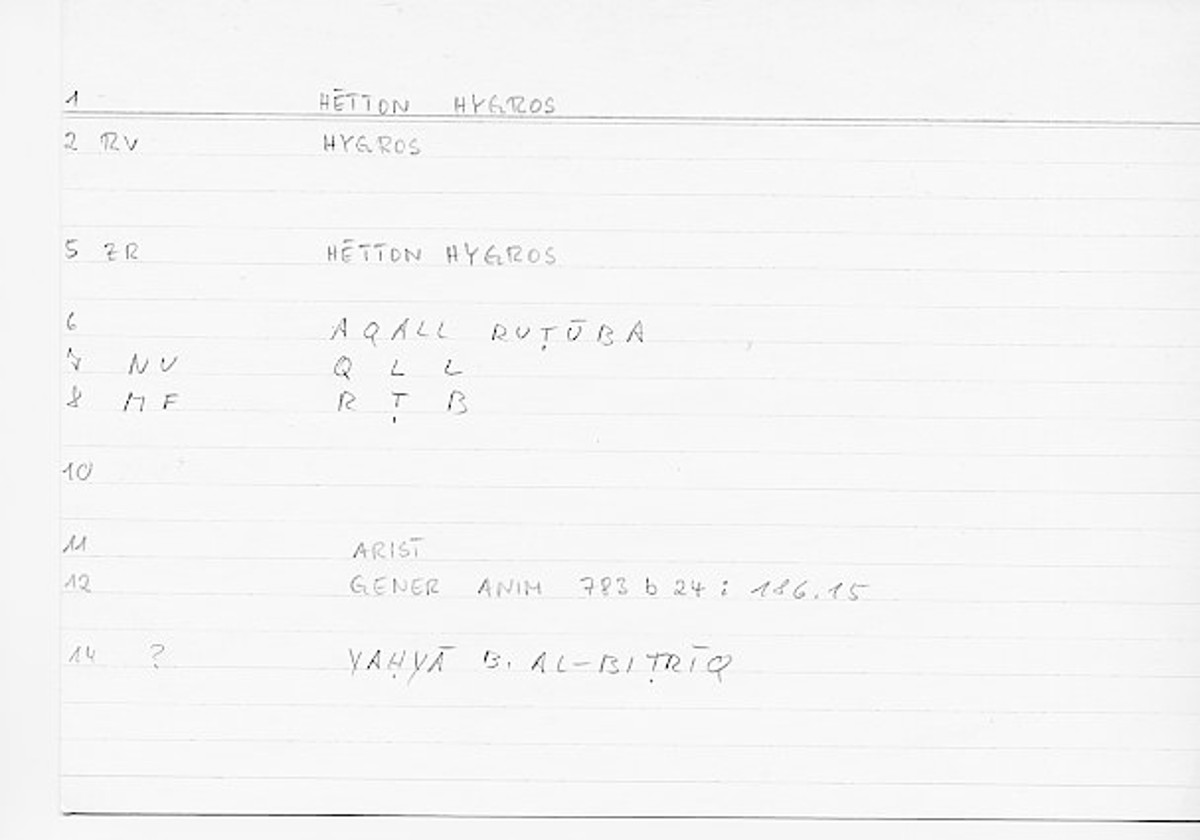 1 HĒTTON HYGROS
2 RV HYGROS
5 ZR HĒTTON HYGROS
6 AQALL RUṬŪBA
7 NV Q L L
8 MF R Ṭ B
10
11 ARIST
12 GENER ANIM 783 b 24 : 186.15
14 ? YAḤYĀ B. AL-BIṬRĪQ